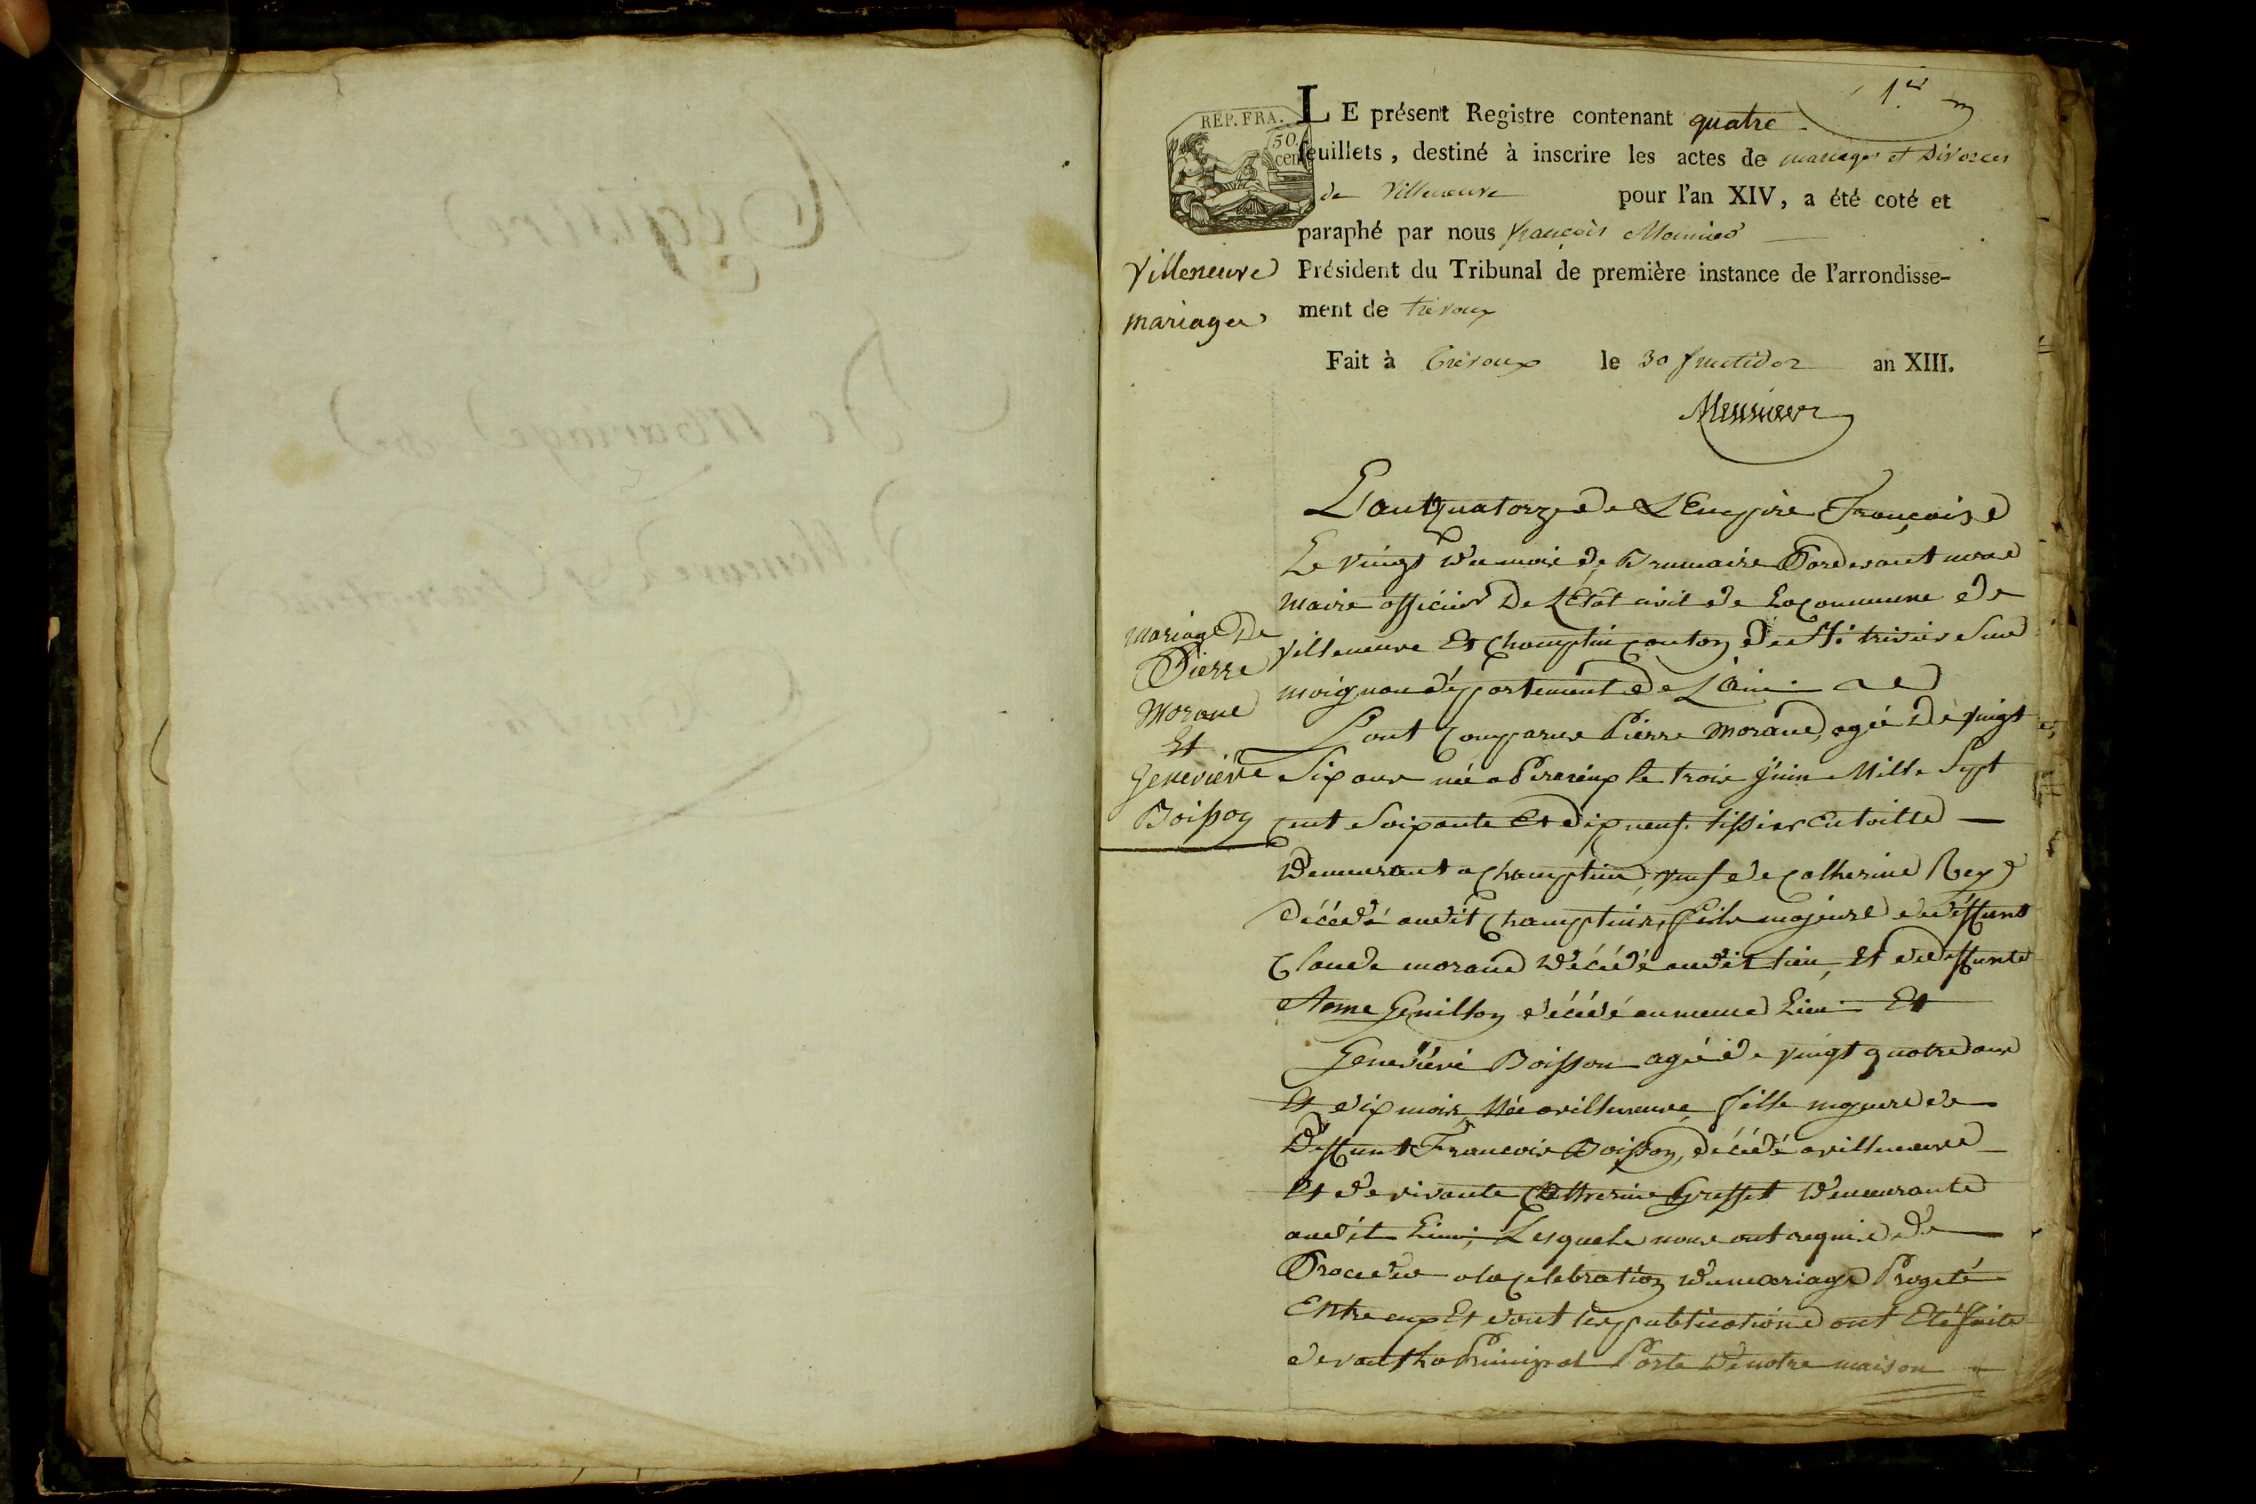 1.er
REP. FRA.
50
cen
LE présent Registre contenant quatre
feuillets, destiné à inscrire les actes de mariages et Divorces
de Villeneuve pour l'an XIV, a été coté et
paraphé par nous françois
Président du Tribunal de première instance de l'arrondisse-
ment de trévoux
Fait à Trévoux le 30 fructidor an XIII.
Villeneuve
mariages
mariage De
Pierre
Morane
Et
Genevieve
Boisson
L'an Quatorze De L'Empire François
Le vingt du mois de Brumaire Pardevant nous
Maire officier De L'Etat civil de La Commune de
Villeneuve Et Champtin Canton de St. trivier Sur
moignan département de L'Ain
Sont Comparus Pierre Morand, agée De vingt
Six ans née a le trois Juin Mille Sept
Cent Soixante Et dix neuf. tissier en toille
Demeurant a Champtin, veuf de Catherine Rey
décédé audit Champtin, fils majeure de deffunt
Claude morand décédé audit lieu, Et de deffunte
Anne Genillon décédé au meme Lieu Et
Genevièvé Boisson agée de vingt quatre ans
Et dix mois, Née a villeneuve, fille majeure de
Deffunt Francois Boisson, décédé a villeneuve
Et de vivante Catherine Greffet Demeurante
audit Lieu, Lesquels nous ont requis de
Proceder a la Celebration du mariage Progeté
Entre eux Et dont les publications ont Eté faite
devant La Principal Porte De notre maison